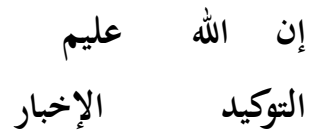 إن الله عليم
التوكيد الإخبار